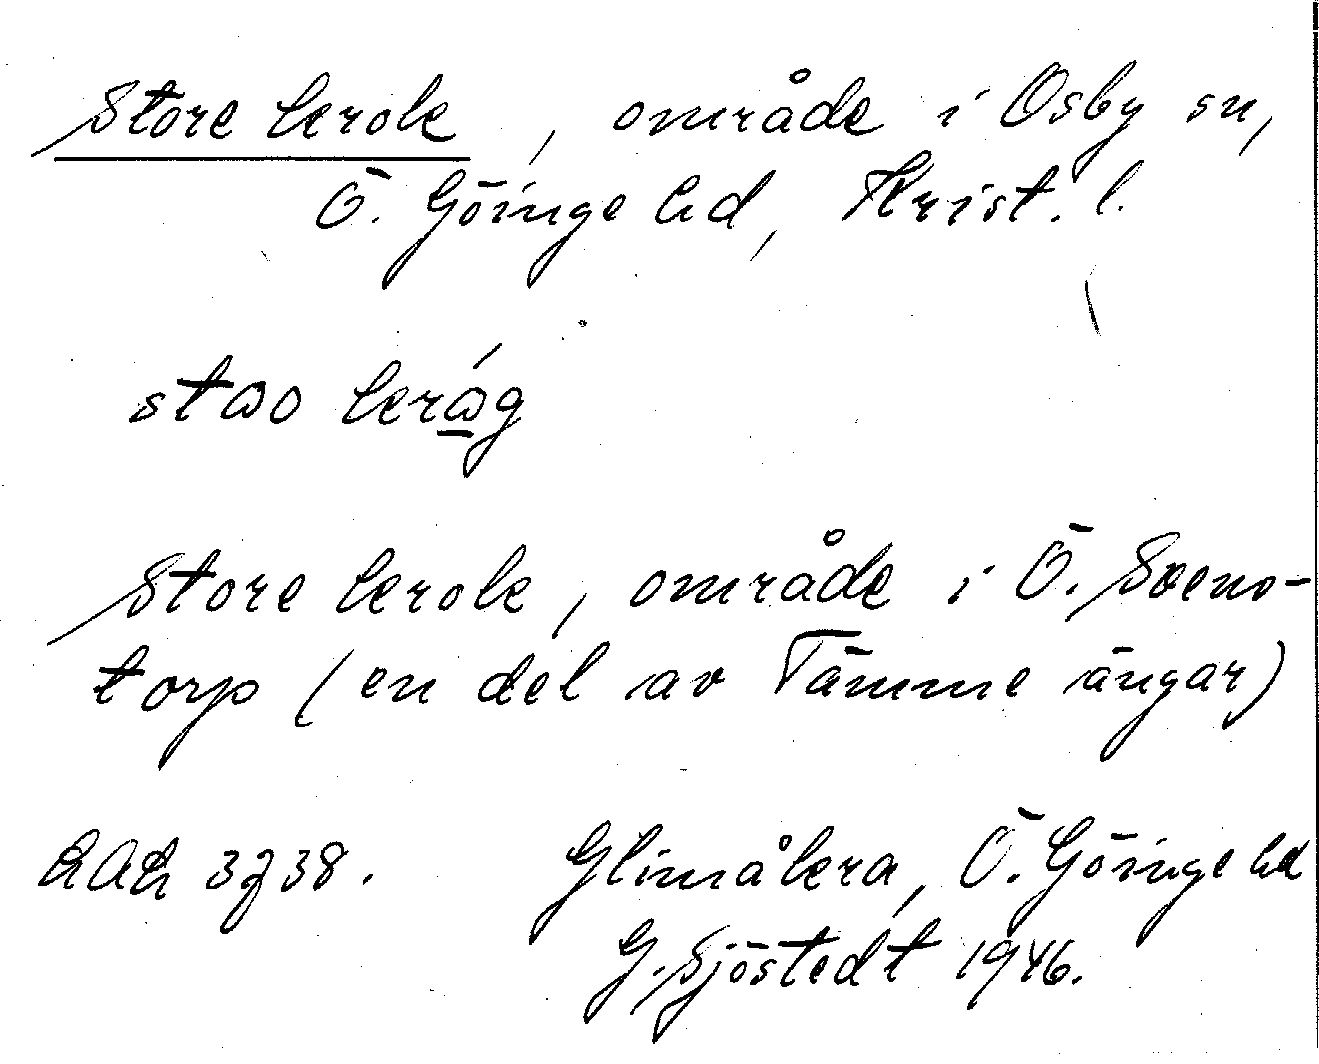 Store krok, område i Osby sn,
Ö. Göinge hd, Krist. l.
stɷo krɷ̲́g
Store krok, område i Ö. Svens-
torp (en del av Tämme ängar)
RAK 3738. Glimåkra, Ö. Göinge hd
G. Sjöstedt 1946.